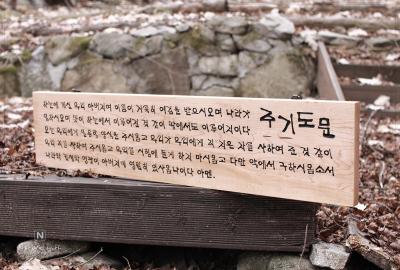 주기도문
하늘에 계신 우리 아버지여 이름이 거룩히 여김을 받으시오며 나라가
임하시오며 뜻이 하늘에서 이루어진 것 같이 땅에서도 이루어지이다
오늘 우리에게 일용할 양식을 주시옵고 우리가 우리에게 죄 지은 자를 사하여 준 것 같이
우리 죄를 사하여 주시옵고 우리를 시험에 들게 하지 마시옵고 다만 악에서 구하시옵소서
나라와 권세와 영광이 아버지께 영원히 있사옵나이다 아멘.
N